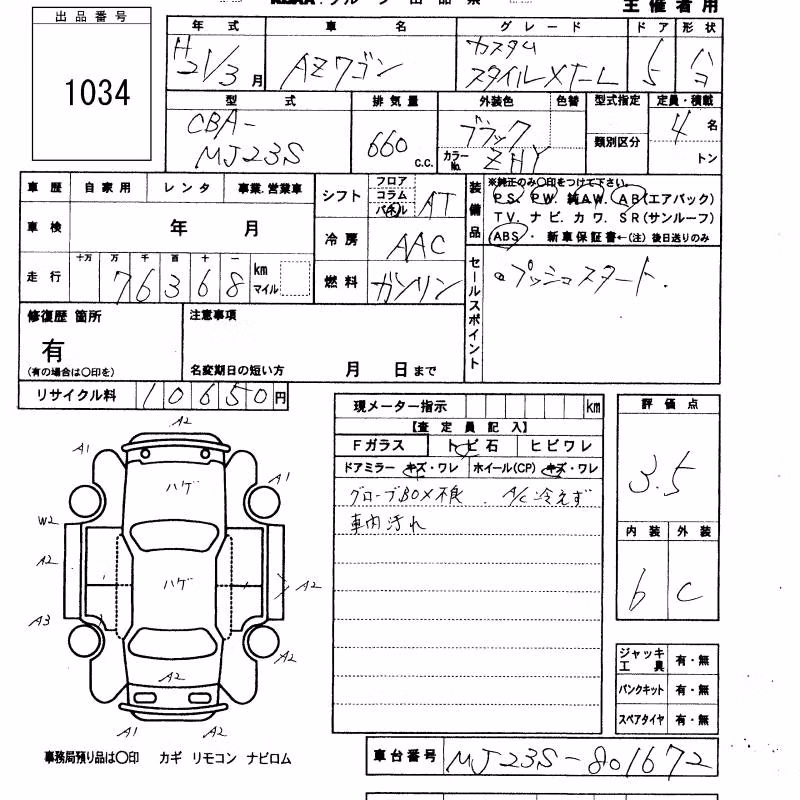 主催者用
出品番号
1034
年式 車名 グレード ドア 形状
H21/3月 AZワゴン カスタムスタイルXT-L 5 ハコ
型式 排気量 外装色 色替 型式指定 定員・積載
CBA-MJ23S 660 c.c. ブラック カラーNo. ZHY 類別区分 4名 トン
車歴 自家用 レンタ 事業.営業車
シフト フロア コラム パネル AT
車検 年 月
冷房 AAC
走行 十万 万 千 百 十 一 km マイル
76368
燃料 ガソリン
装備品 ※純正のみ○印をつけて下さい。
PS. PW. 純AW. AB(エアバック)
TV. ナビ. カワ. SR(サンルーフ)
ABS・ 新車保証書←(注) 後日送りのみ
セールスポイント
プッシュスタート.
修復歴 箇所
有
(有の場合は○印を)
注意事項
名変期日の短い方 月 日まで
リサイクル料 10650円
現メーター指示 km
【査定員記入】
Fガラス トビ石 ヒビワレ
ドアミラー キズ・ワレ ホイール(CP) キズ・ワレ
グローブBOX不良 . A/C冷えず
車内汚れ
評価点
3.5
内装 外装
b C
A2
A1
ハゲ
A1
W2
A2
ハゲ
A2
A3
A2
A2
A1 A2
ジャッキ工具 有・無
パンクキット 有・無
スペアタイヤ 有・無
事務局預り品は○印 カギ リモコン ナビロム
車台番号 MJ23S-801672